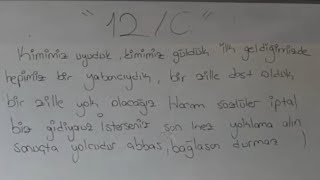 "12/C"
Kimimiz uyuduk, kimimiz güldük ilk geldiğimizde
hepimiz bir yabancıydık, bir zille dost olduk
bir zille yok olacağız Hanım sözlüler iptal
biz gidiyoruz İsterseniz son kez yoklama alın
sonuçta yolcudur abbas, bağlasan durmaz